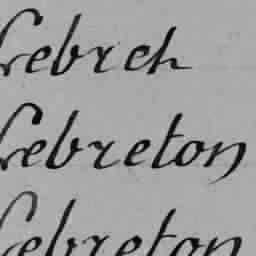 Lebrech
Lebreton
Lebreton